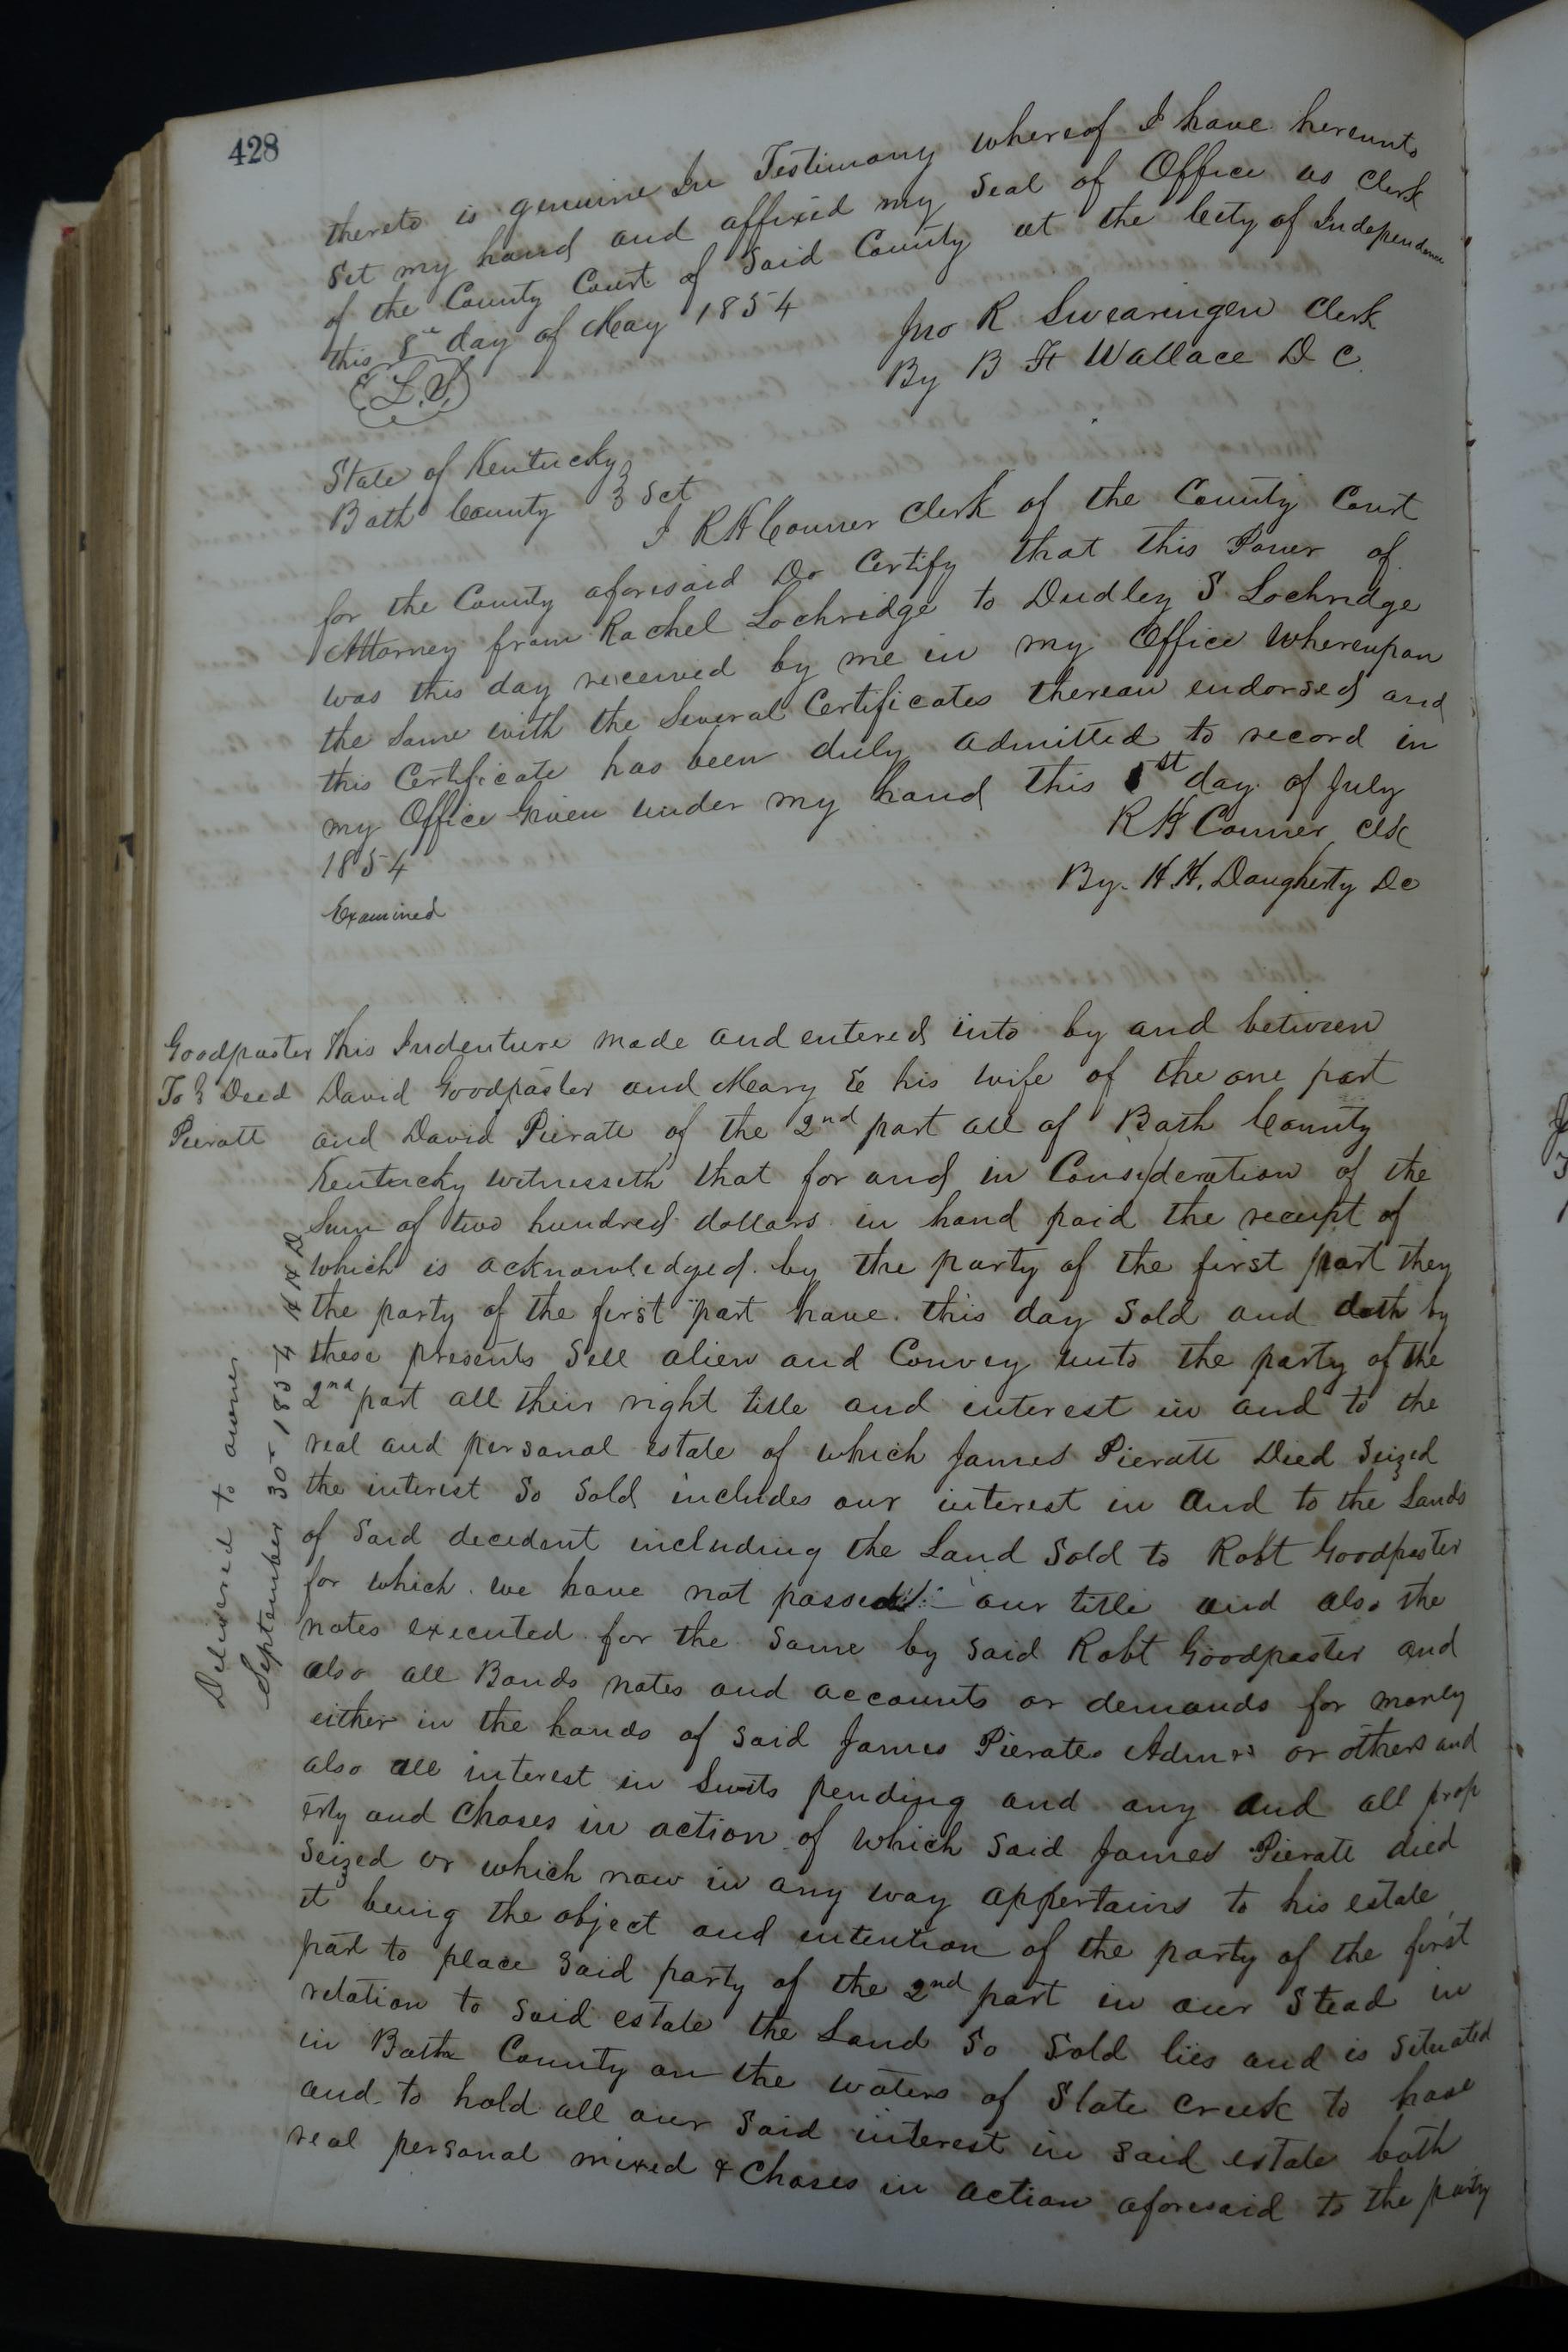 428
thereto is genuine In Testimony whereof I have hereunto
Set my hand and affixed my Seal of Office as Clerk
of the County Court of Said County at the City of Independence
this 8th day of May 1854
Jno R Swearingen Clerk
(L.S.)
By B F Wallace D C
State of Kentucky }
Bath County } Sct
I R H Conner Clerk of the County Court
for the County aforesaid Do Certify that this Power of
Attorney from Rachel Lochridge to Dudley S Lochridge
was this day received by me in my Office Whereupon
the Same with the Several Certificates thereon endorsed and
this Certificate has been duly admitted to record in
my Office Given under my hand this 1st day of July
1854
R H Conner Clk
By H. H. Daugherty Dc
Examined
Goodpaster
To } Deed
Pieratt
This Indenture made and entered into by and between
David Goodpaster and Mary E his wife of the one part
and David Pieratt of the 2nd part all of Bath County
Kentucky witnesseth that for and in Consideration of the
Sum of two hundred dollars in hand paid the receipt of
which is acknowledged by the party of the first part they
the party of the first part have this day Sold and doth by
these presents Sell alien and Convey unto the party of the
2nd part all their right title and interest in and to the
real and personal estate of which James Pieratt Died Seized
the interest So Sold includes our interest in and to the Lands
of Said decedent including the Land Sold to Robt Goodpaster
for which we have not passed our title and also the
notes executed for the Same by Said Robt Goodpaster and
also all Bonds notes and accounts or demands for money
either in the hands of Said James Pieratts Admrs or others and
also all interest in Suits pending and any and all prop
erty and Choses in action of which Said James Pieratt died
Seized or which now in any way appertains to his estate
it being the object and intention of the party of the first
part to place Said party of the 2nd part in our Stead in
relation to Said estate the Land So Sold lies and is Situated
in Bath County on the waters of Slate Creek to have
and to hold all our Said interest in Said estate both
real personal mixed & Choses in action aforesaid to the party
Delivered to owner
September 30th 1854 H H D